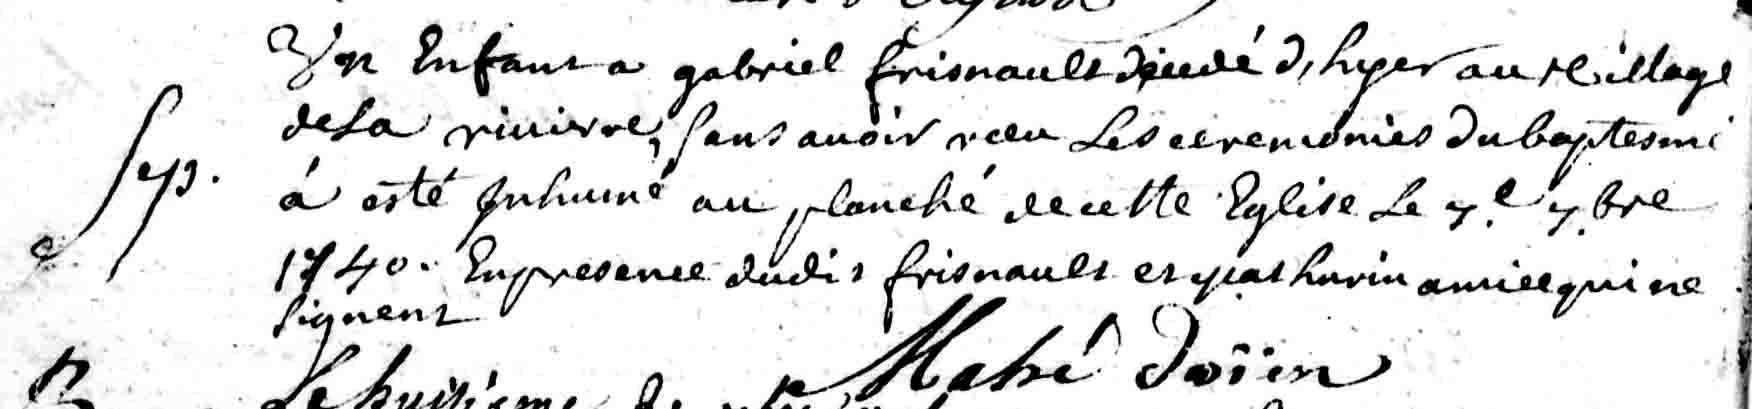 Un Enfant a gabriel frisnault décédé d'hyer au village
de La riviere, sans avoir receu Les ceremonies du baptesme
Sep. à esté Inhumé au planché de cette Eglise Le 7.e 7.bre
1740. En presence dudit frisnault et Mathurin amice qui ne
signent
Mahé doïen
Le huitième de